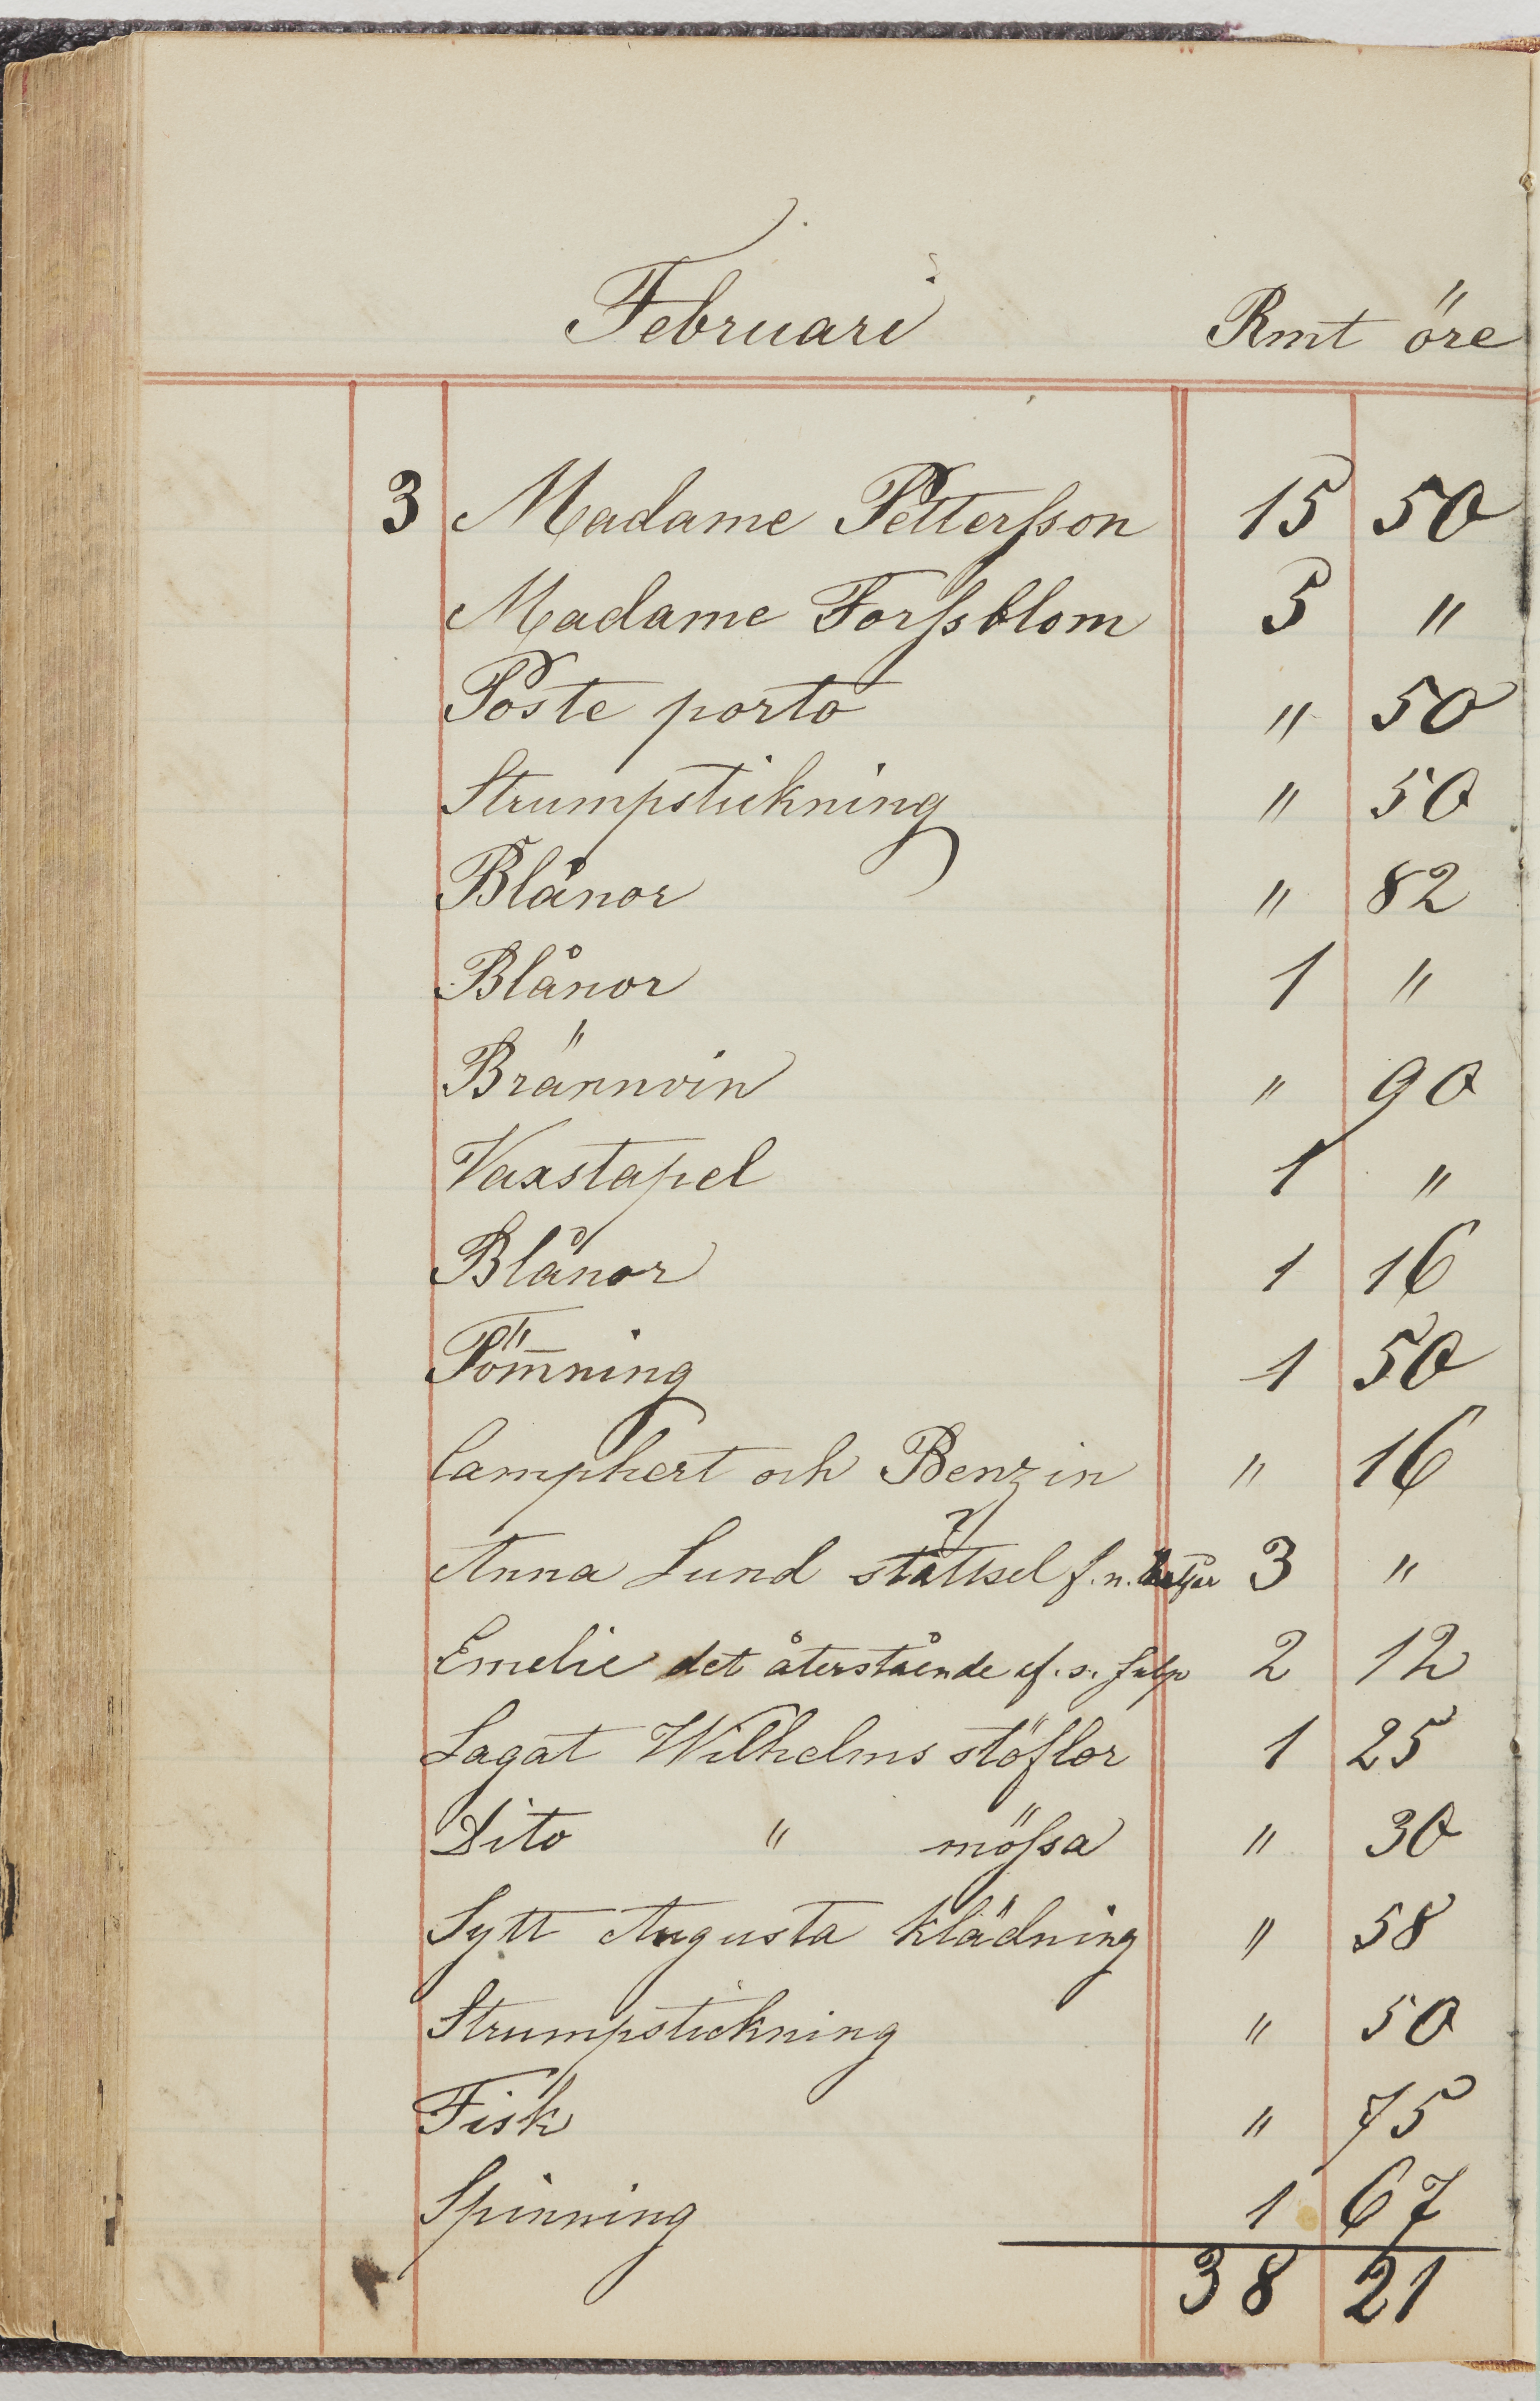 Februari Rmt öre
3 Madame Pettersson 15 50
Madame Forssblom 5 "
Poste porto " 50
Strumpstickning " 50
Blånor " 82
Blånor 1 "
Brännvin " 90
Vaxstapel 1 "
Blånor 1 16
Töm̅ning 1 50
Camphert och Benzin " 16
Anna Lund f. n. 3 "
Emelie det återstående af. s. 2 12
Lagat Wilhelms stöflor 1 25
Dito " mössa " 30
Sytt Augusta klädning " 58
Strumpstickning " 50
Fisk " 75
Spinning 1 67
38 21